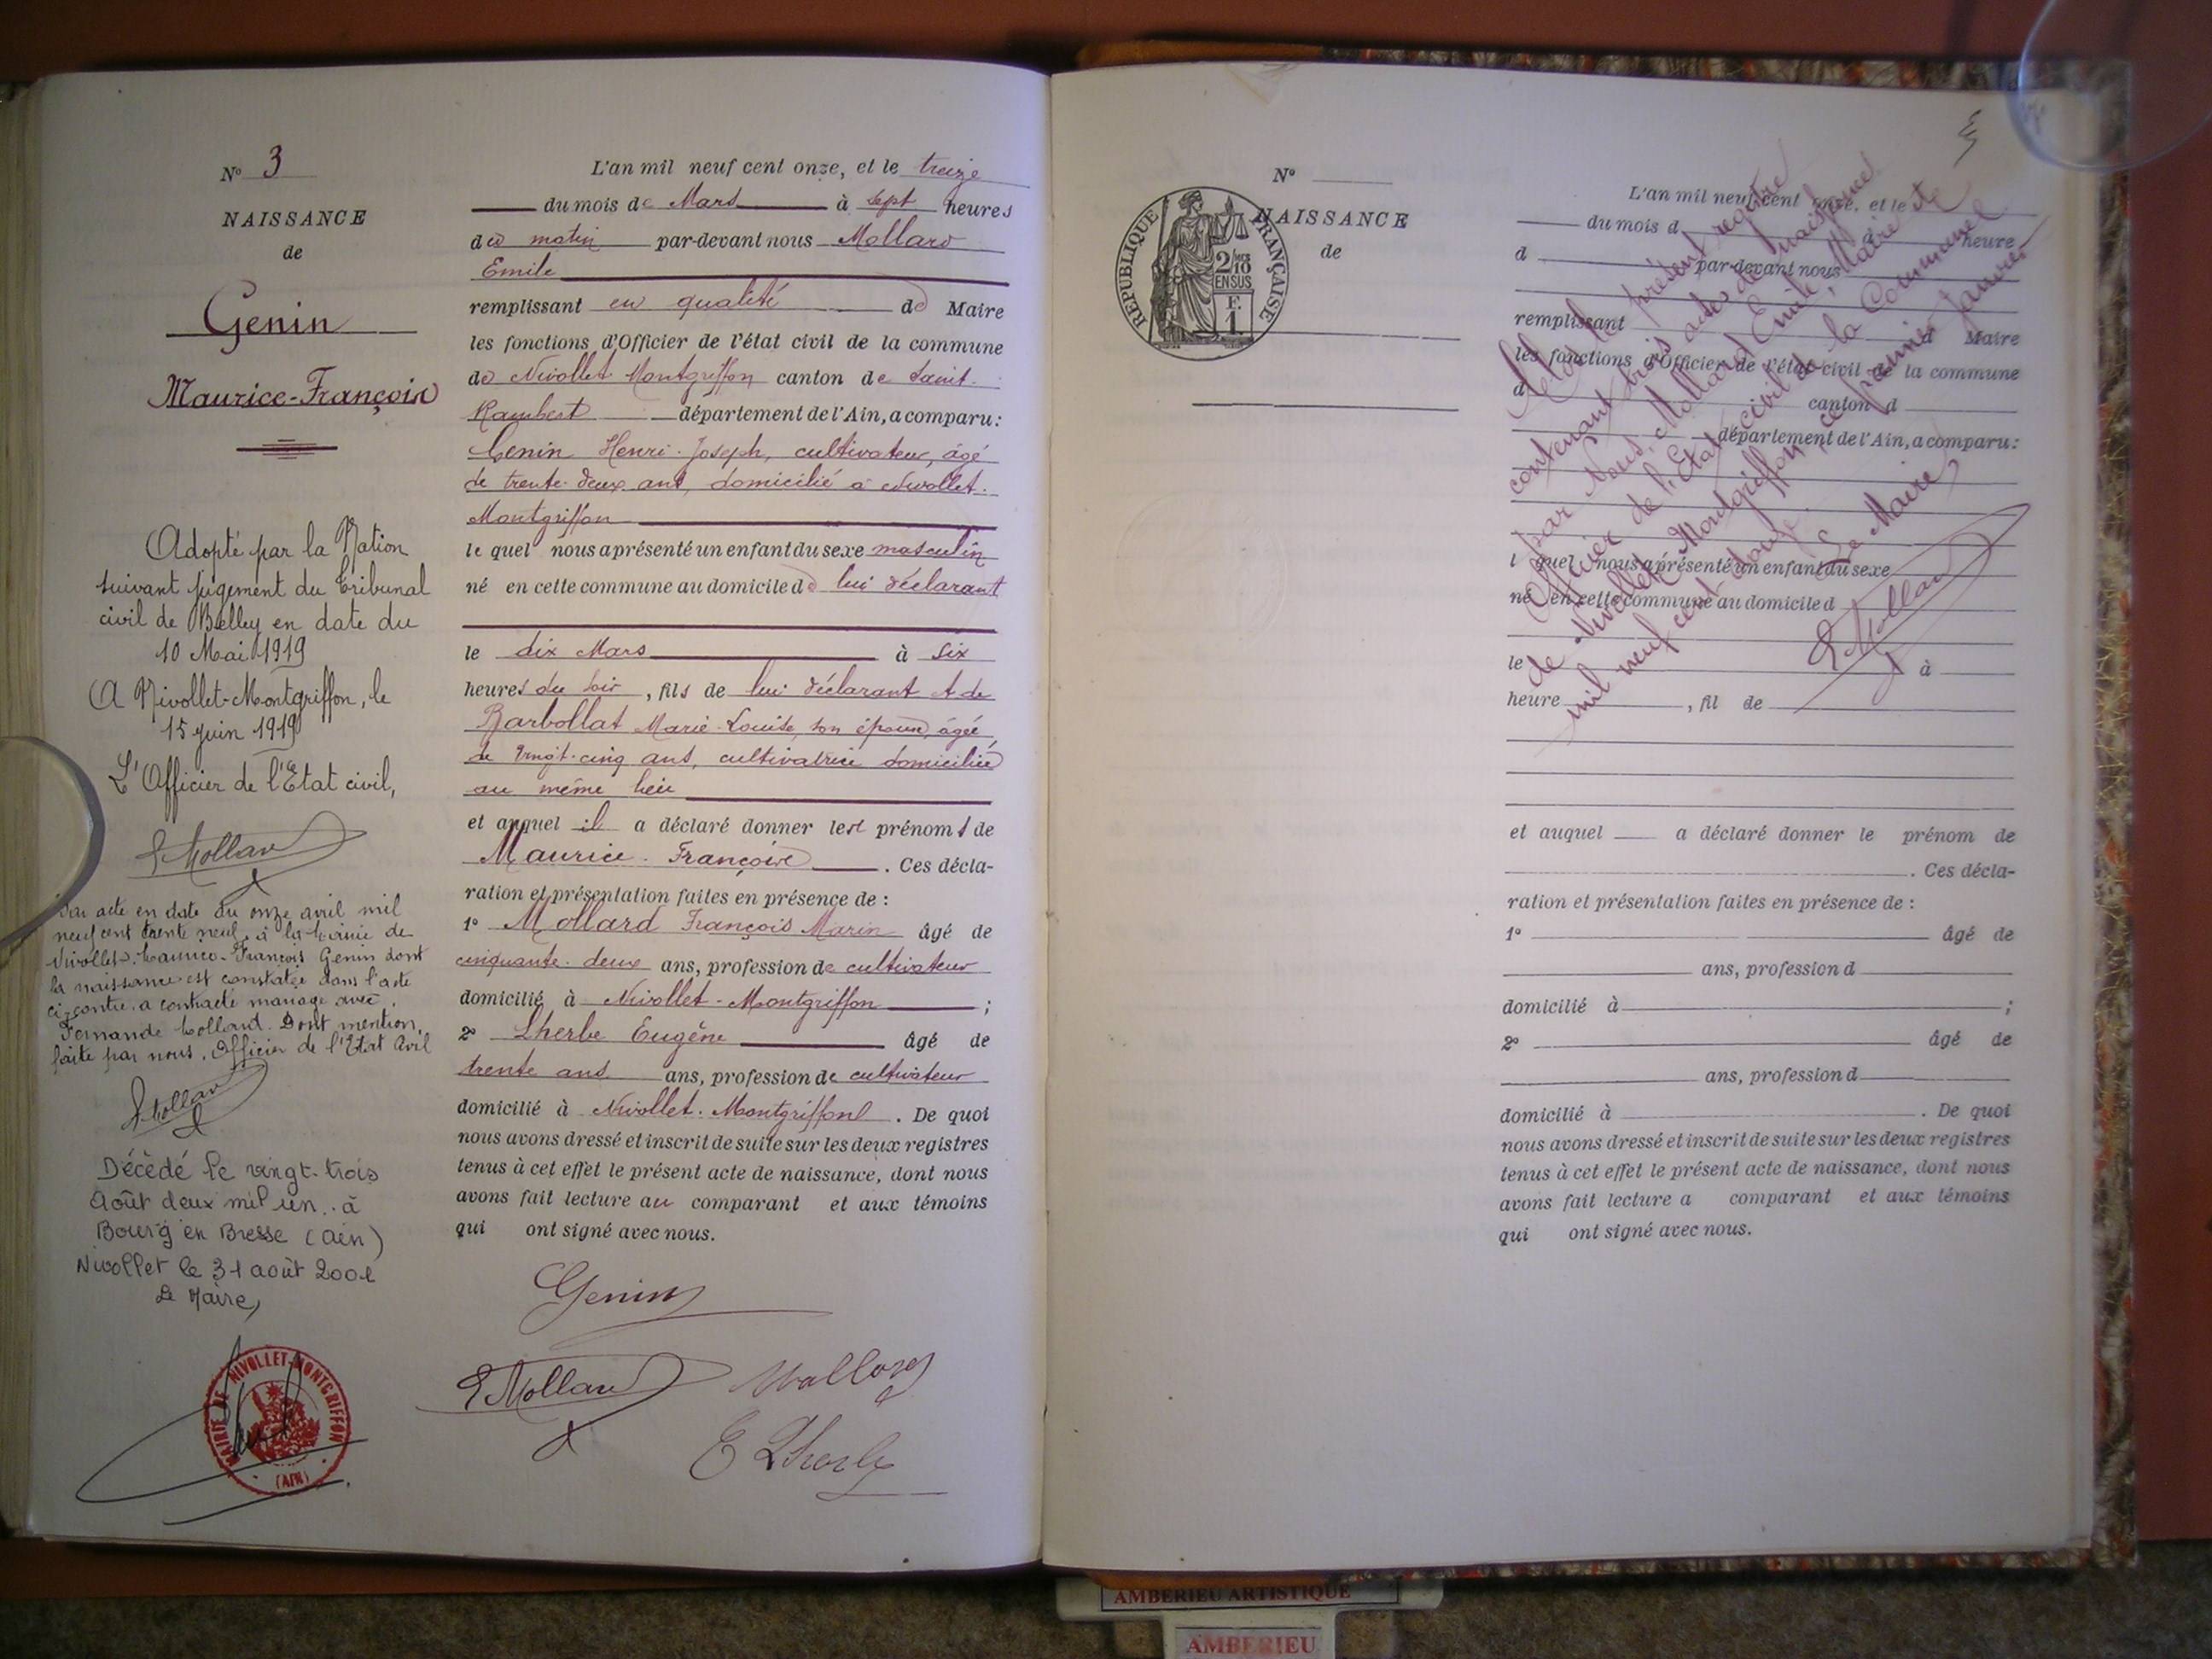 N° 3
NAISSANCE
de
Genin
Maurice-François
Adopté par la Nation
suivant jugement du Tribunal
civil de Belley en date du
10 Mai 1919
A Nivollet-Montgriffon, le
15 juin 1919
L'Officier de l'Etat civil,
E Mollard
Par acte en date du onze avril mil
neuf cent trente neuf, à la Mairie de
Nivollet. Maurice-François Genin dont
la naissance est constatée dans l'acte
ci-contre a contracté mariage avec
Fernande Dont mention
faite par nous, Officier de l'Etat Civil
E Mollard
Décédé le vingt-trois
Août deux mil un à
Bourg en Bresse (Ain)
Nivollet le 31 août 2001
Le Maire,
MAIRIE DE NIVOLLET-MONTGRIFFON
(AIN)
L'an mil neuf cent onze, et le treize
du mois de Mars à sept heures
du matin par-devant nous Mollard
Emile
remplissant en qualité de Maire
les fonctions d'Officier de l'état civil de la commune
de Nivollet Montgriffon canton de Saint-
Rambert département de l'Ain, a comparu:
Genin Henri-Joseph, cultivateur, âgé
de trente-deux ans, domicilié à Nivollet-
Montgriffon
le quel nous a présenté un enfant du sexe masculin
né en cette commune au domicile de lui déclarant
le dix Mars à six
heures du soir, fils de lui déclarant et de
Barbollat Marie-Louise, son épouse, âgée
de vingt-cinq ans, cultivatrice domiciliée
au même lieu
et auquel il a déclaré donner les prénoms de
Maurice-François. Ces décla-
ration et présentation faites en présence de :
1° Mollard François Marin âgé de
cinquante-deux ans, profession de cultivateur
domicilié à Nivollet-Montgriffon ;
2° Lherbe Eugène âgé de
trente ans ans, profession de cultivateur
domicilié à Nivollet-Montgriffon. De quoi
nous avons dressé et inscrit de suite sur les deux registres
tenus à cet effet le présent acte de naissance, dont nous
avons fait lecture au comparant et aux témoins
qui ont signé avec nous.
Genin
E Mollard Mollard
E Lherbe
N°
NAISSANCE
de
RÉPUBLIQUE FRANÇAISE
2/10 MES
EN SUS
F.
1
L'an mil neuf cent onze, et le
du mois d à heure
d par-devant nous
remplissant d Maire
les fonctions d'Officier de l'état civil de la commune
d canton d
département de l'Ain, a comparu:
l quel nous a présenté un enfant du sexe
né en cette commune au domicile d
le à
heure , fil de
et auquel a déclaré donner le prénom de
. Ces décla-
ration et présentation faites en présence de :
1° âgé de
ans, profession d
domicilié à ;
2° âgé de
ans, profession d
domicilié à . De quoi
nous avons dressé et inscrit de suite sur les deux registres
tenus à cet effet le présent acte de naissance, dont nous
avons fait lecture a comparant et aux témoins
qui ont signé avec nous.
le présent registre
contenant trois actes de naissance
par Nous, Mollard Emile, Maire et
Officier de l'Etat civil de la Commune
de Nivollet Montgriffon, ce premier Janvier
mil neuf cent douze
Le Maire
E Mollard
AMBERIEU ARTISTIQUE
AMBERIEU